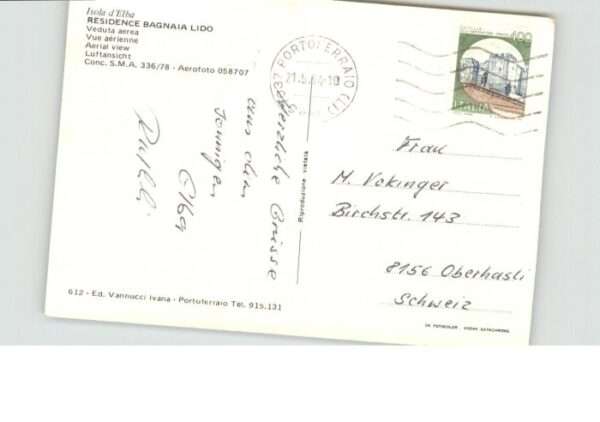 Isola d'Elba
RESIDENCE BAGNAIA LIDO
Veduta aerea
Vue aérienne
Aerial view
Luftansicht
Conc. S.M.A. 336/78 - Aerofoto 058707
PORTOFERRAIO (LI)
400
ITALIA
Herzliche Grüsse
aus dem
sonnigen
Elba
Riproduzione vietata
Frau
M. Vokinger
Birchstr. 143
8156 Oberhasli
Schweiz
612 - Ed. Vannucci Ivana - Portoferraio Tel. 915.131